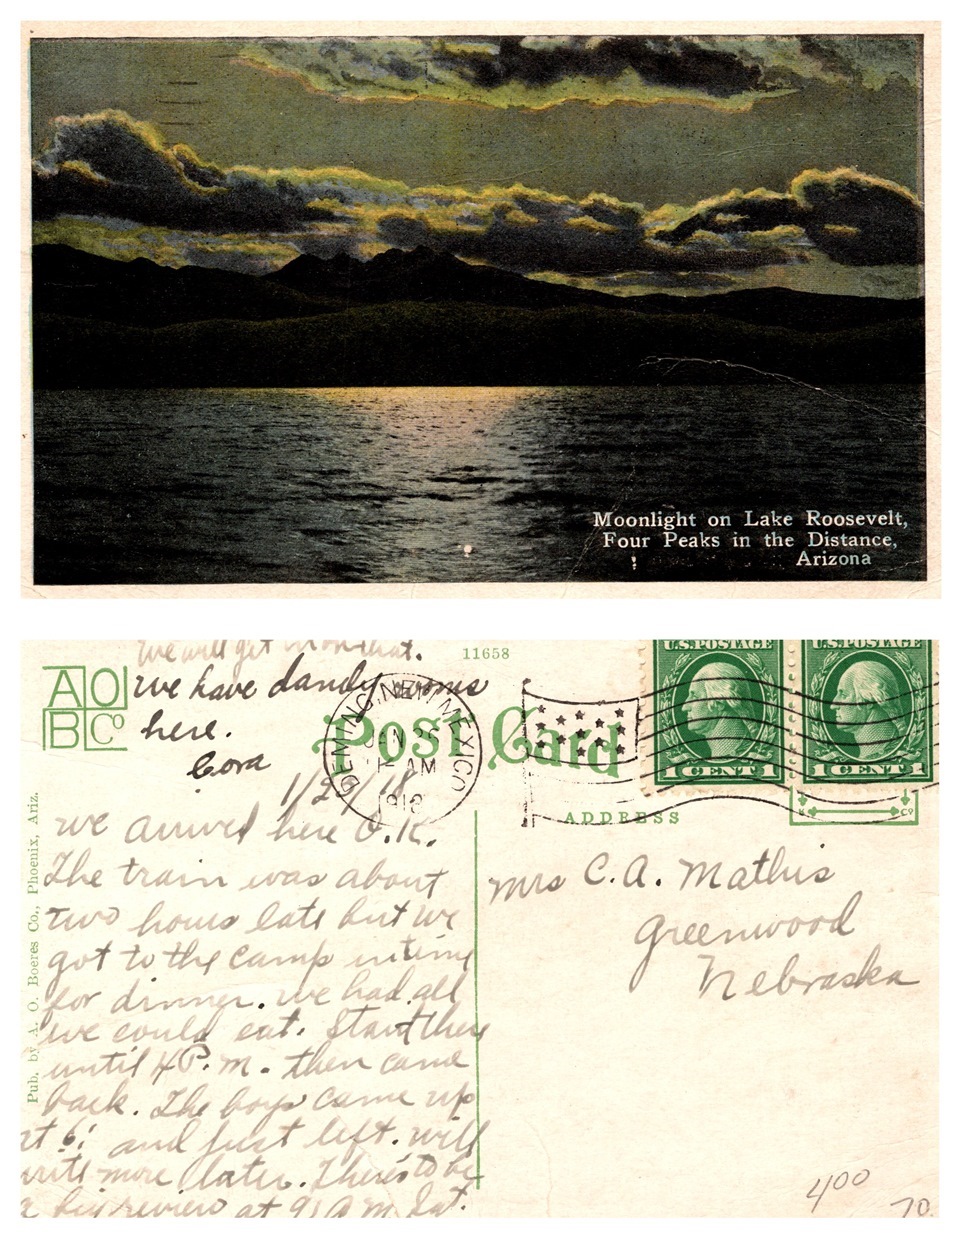 Moonlight on Lake Roosevelt,
Four Peaks in the Distance,
Arizona
We will get
we have dandy rooms
here.
Cora
11658
AO
BCo
Post Card
DEMING, NEW MEXICO
JAN 26
AM
1918
U.S. POSTAGE
U.S. POSTAGE
1 CENT 1
1 CENT 1
ADDRESS
Pub. by A. O. Boeres Co., Phoenix, Ariz.
1/25/18
we arrived here O.K.
The train was about
two hours late but we
got to the camp in time
for dinner. we had all
we could eat. Staid there
until 4 P.m. then came
back. The boys came up
at 6: and just left. will
write more later. There's to be
a big review at 9: A m Sat.
Mrs C. A. Mathis
Greenwood
Nebraska
4 00
70